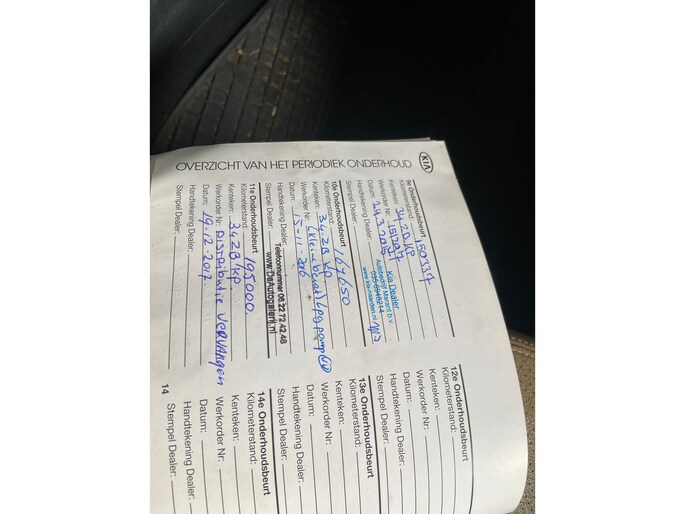 OVERZICHT VAN HET PERIODIEK ONDERHOUD KIA
9e Onderhoudsbeurt
Kilometerstand: 150337
Kenteken: 34 ZB KP
Werkorder Nr.: 151207
Datum: 24.3.2015
Handtekening Dealer:
Stempel Dealer:
Kia Dealer
035-6948214
10e Onderhoudsbeurt
Kilometerstand: 167650
Kenteken: 34.ZB KP
Werkorder Nr.: (kleine beurt) lpg pomp
Datum: 15-11-2016
Handtekening Dealer:
Stempel Dealer:
Telefoonnummer 06.22 72 42 48
www.DeAutogalerij.nl
11e Onderhoudsbeurt
Kilometerstand: 195000.
Kenteken: 34 ZB KP
Werkorder Nr: Distributie vervangen
Datum: 19-12-2017
Handtekening Dealer:
Stempel Dealer:
12e Onderhoudsbeurt
Kilometerstand:
Kenteken:
Werkorder Nr:
Datum:
Handtekening Dealer:
Stempel Dealer:
13e Onderhoudsbeurt
Kilometerstand:
Kenteken:
Werkorder Nr:
Datum:
Handtekening Dealer:
Stempel Dealer:
14e Onderhoudsbeurt
Kilometerstand:
Kenteken:
Werkorder Nr:
Datum:
Handtekening Dealer:
Stempel Dealer:
14